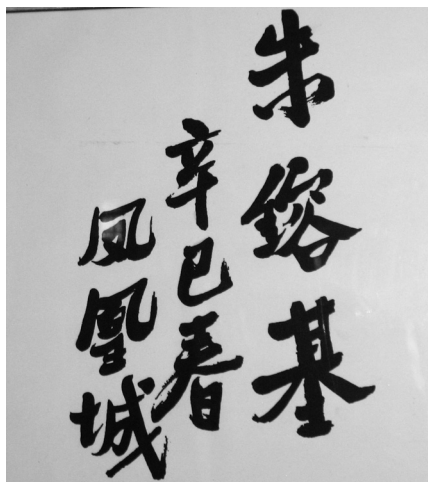 朱鎔基
辛巳春
凤凰城